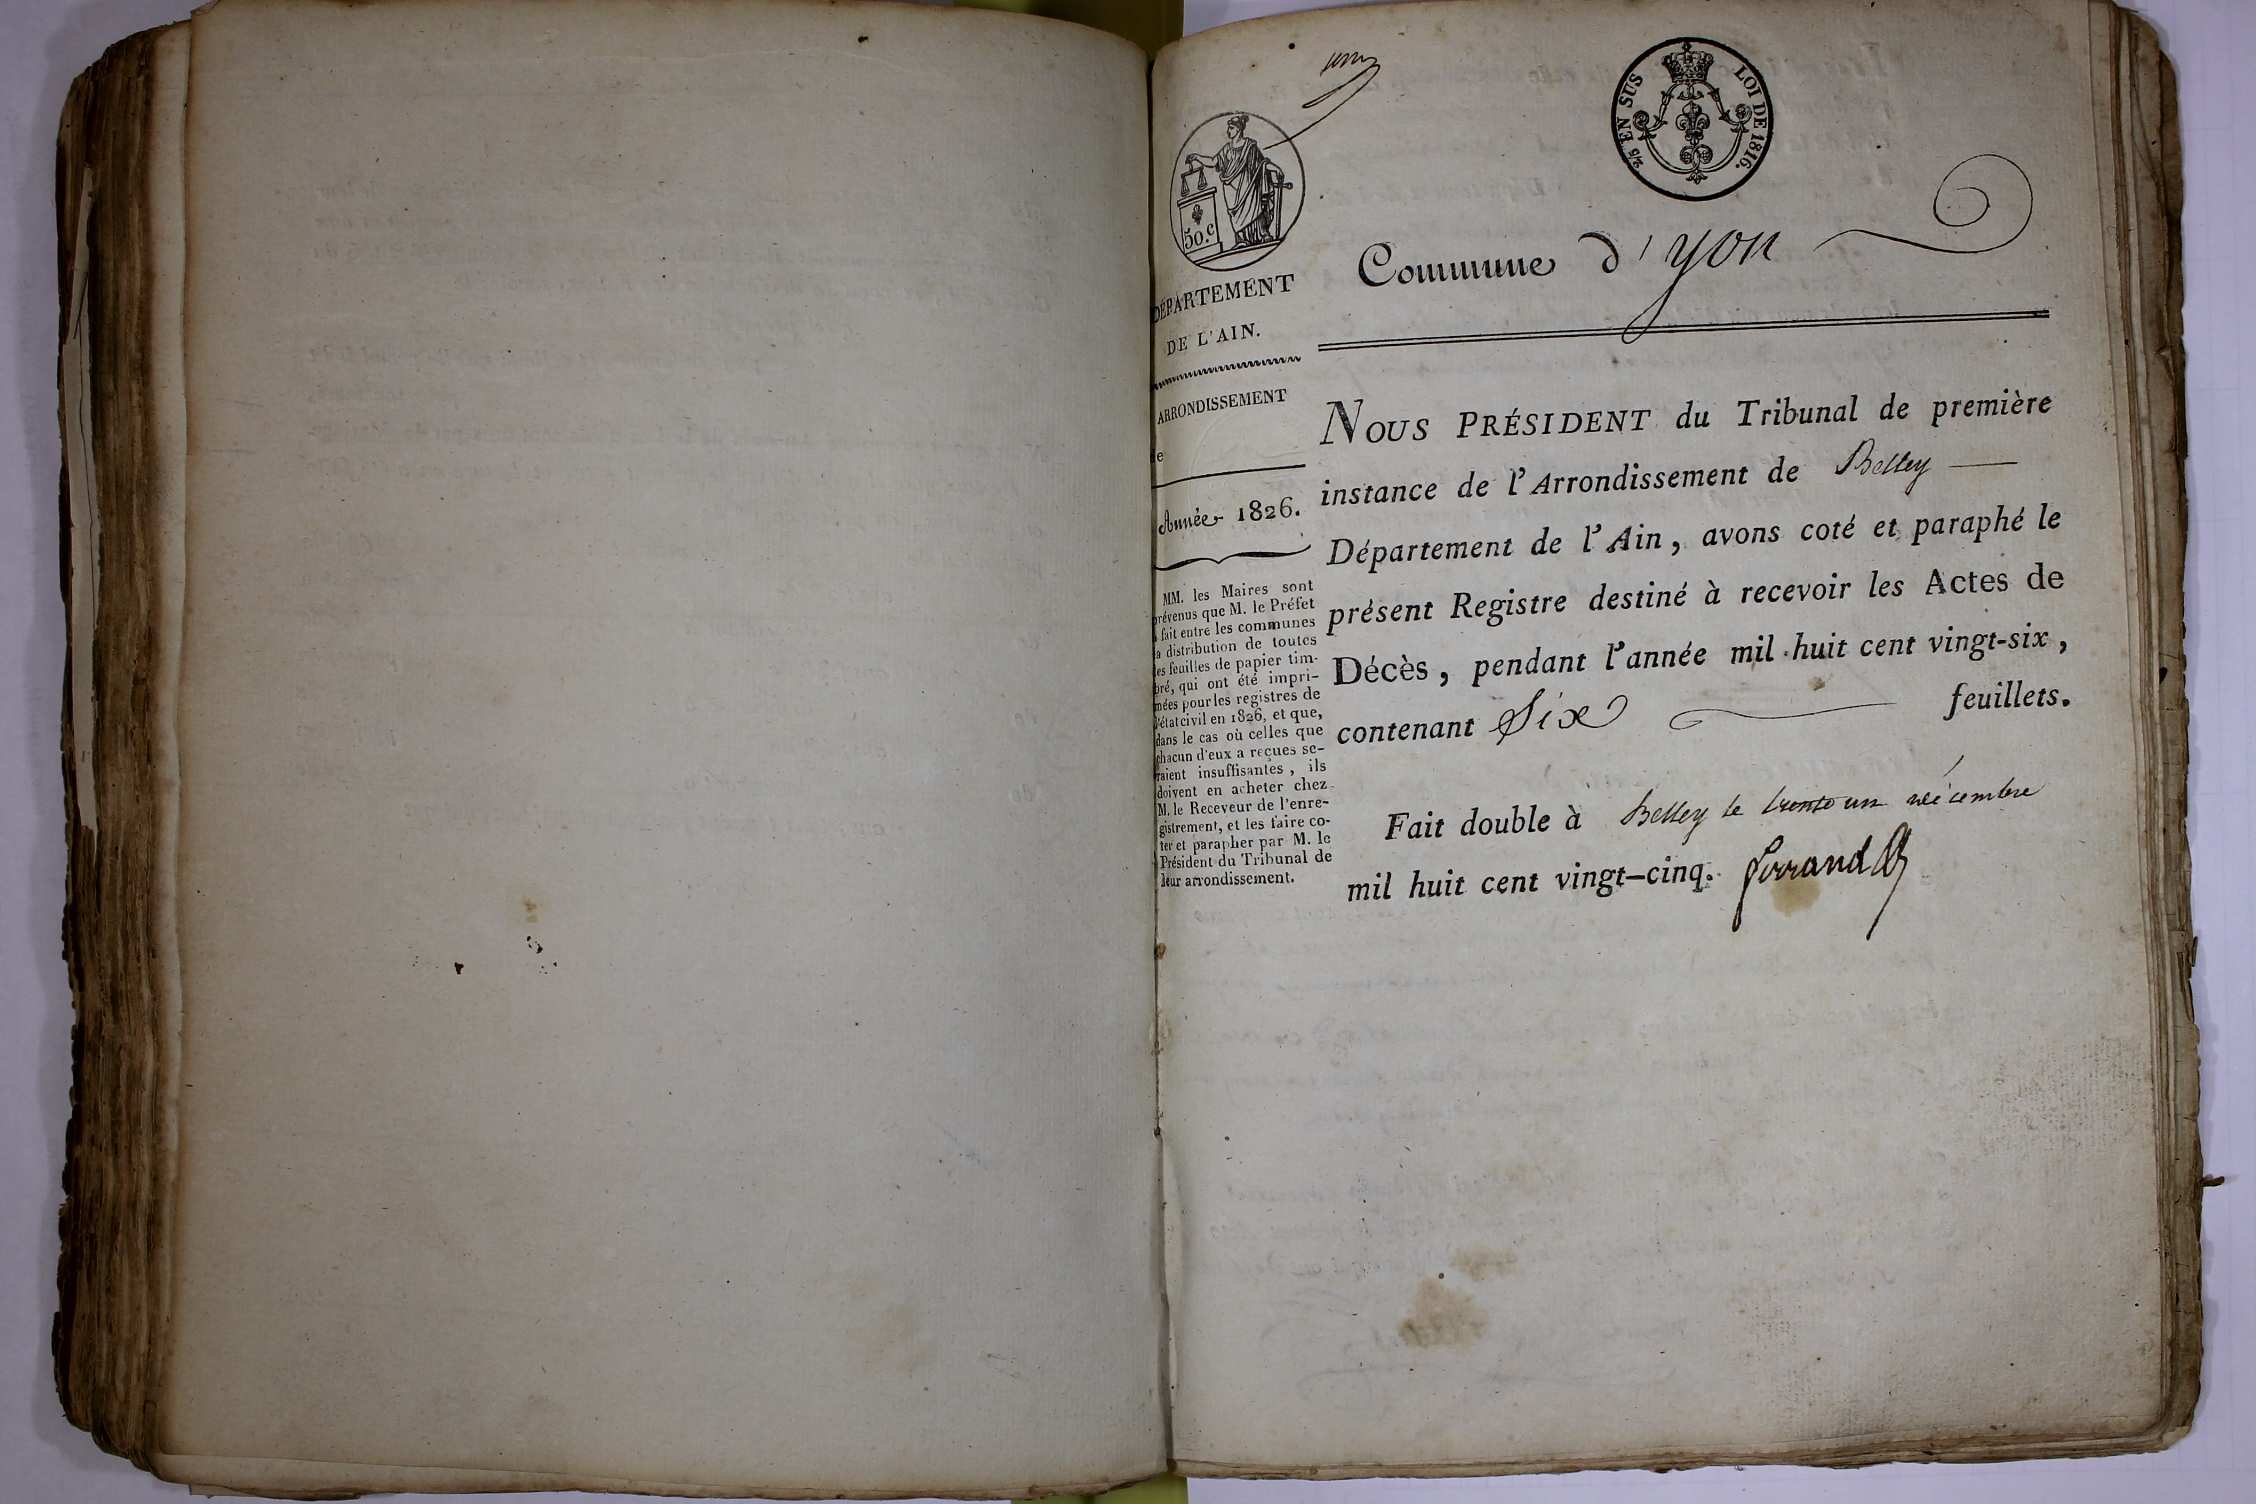 2/5 EN SUS
LOI DE 1816.
50.c
DÉPARTEMENT
DE L'AIN.
ARRONDISSEMENT
de
Année 1826.
MM. les Maires sont
prévenus que M. le Préfet
a fait entre les communes
la distribution de toutes
les feuilles de papier tim-
bré, qui ont été impri-
mées pour les registres de
l'état civil en 1826, et que,
dans le cas où celles que
chacun d'eux a reçues se-
raient insuffisantes, ils
doivent en acheter chez
M. le Receveur de l'enre-
gistrement, et les faire co-
ter et parapher par M. le
Président du Tribunal de
leur arrondissement.
Commune d'yon
NOUS PRÉSIDENT du Tribunal de première
instance de l'Arrondissement de Belley
Département de l'Ain, avons coté et paraphé le
présent Registre destiné à recevoir les Actes de
Décès, pendant l'année mil huit cent vingt-six,
contenant Six feuillets.
Fait double à Belley le trente un décembre
mil huit cent vingt-cinq.